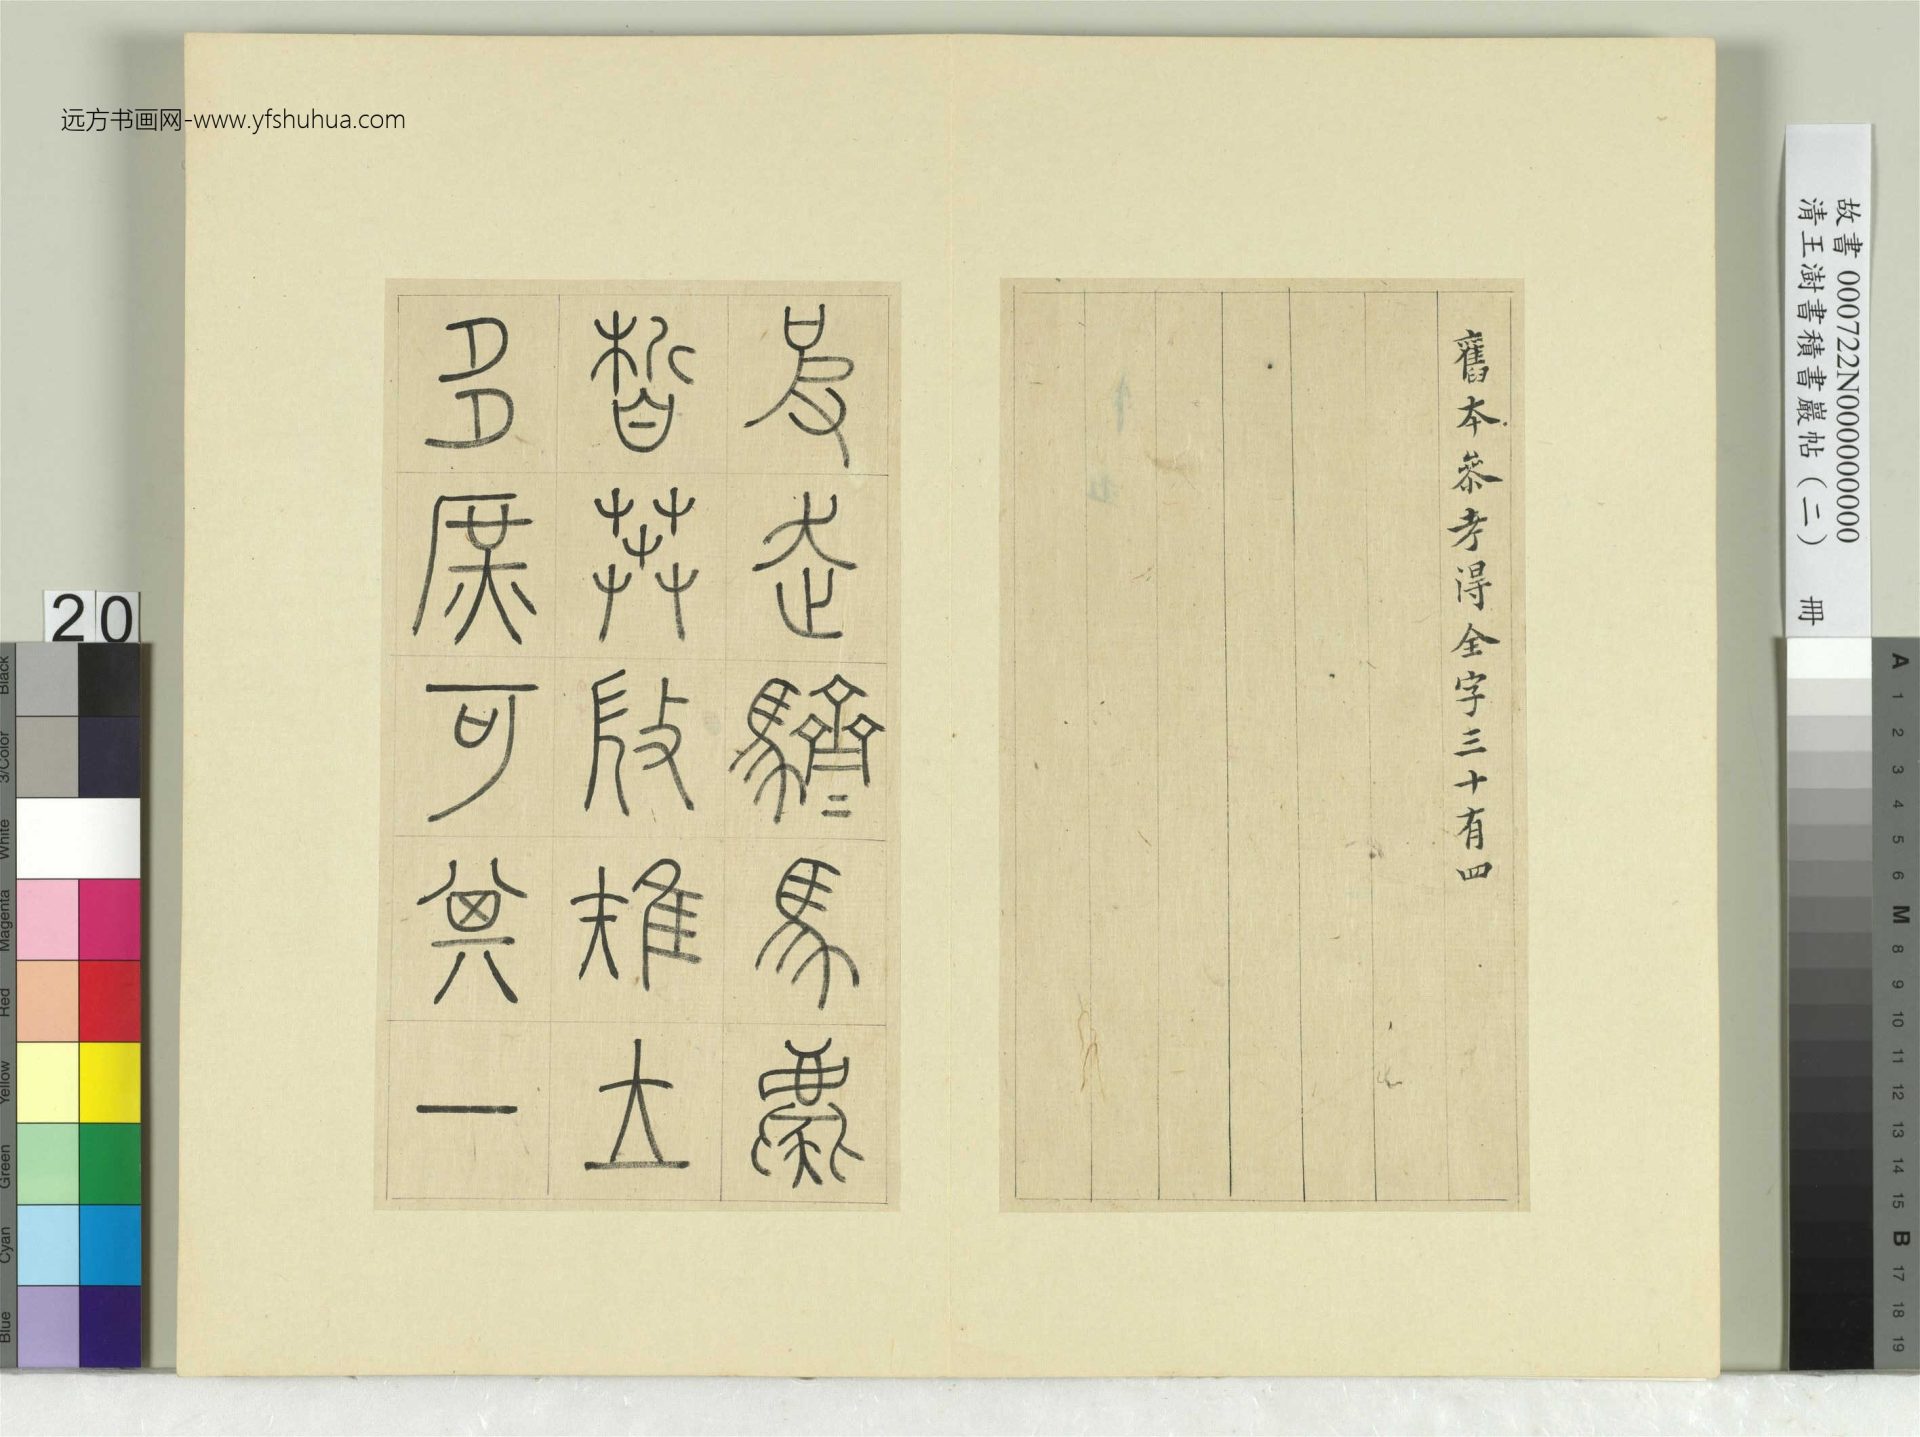 远方书画网-www.yfshuhua.com
故書 000722N000000000
清王澍書積書巖帖（二） 冊
舊本叅考得全字三十有四
皮走䮺=馬薦
皙雉立
多庶可一
20
Black
3/Color
White
Magenta
Red
Yellow
Green
Cyan
Blue
A
1
2
3
4
5
6
M
8
9
10
11
12
13
14
15
B
17
18
19